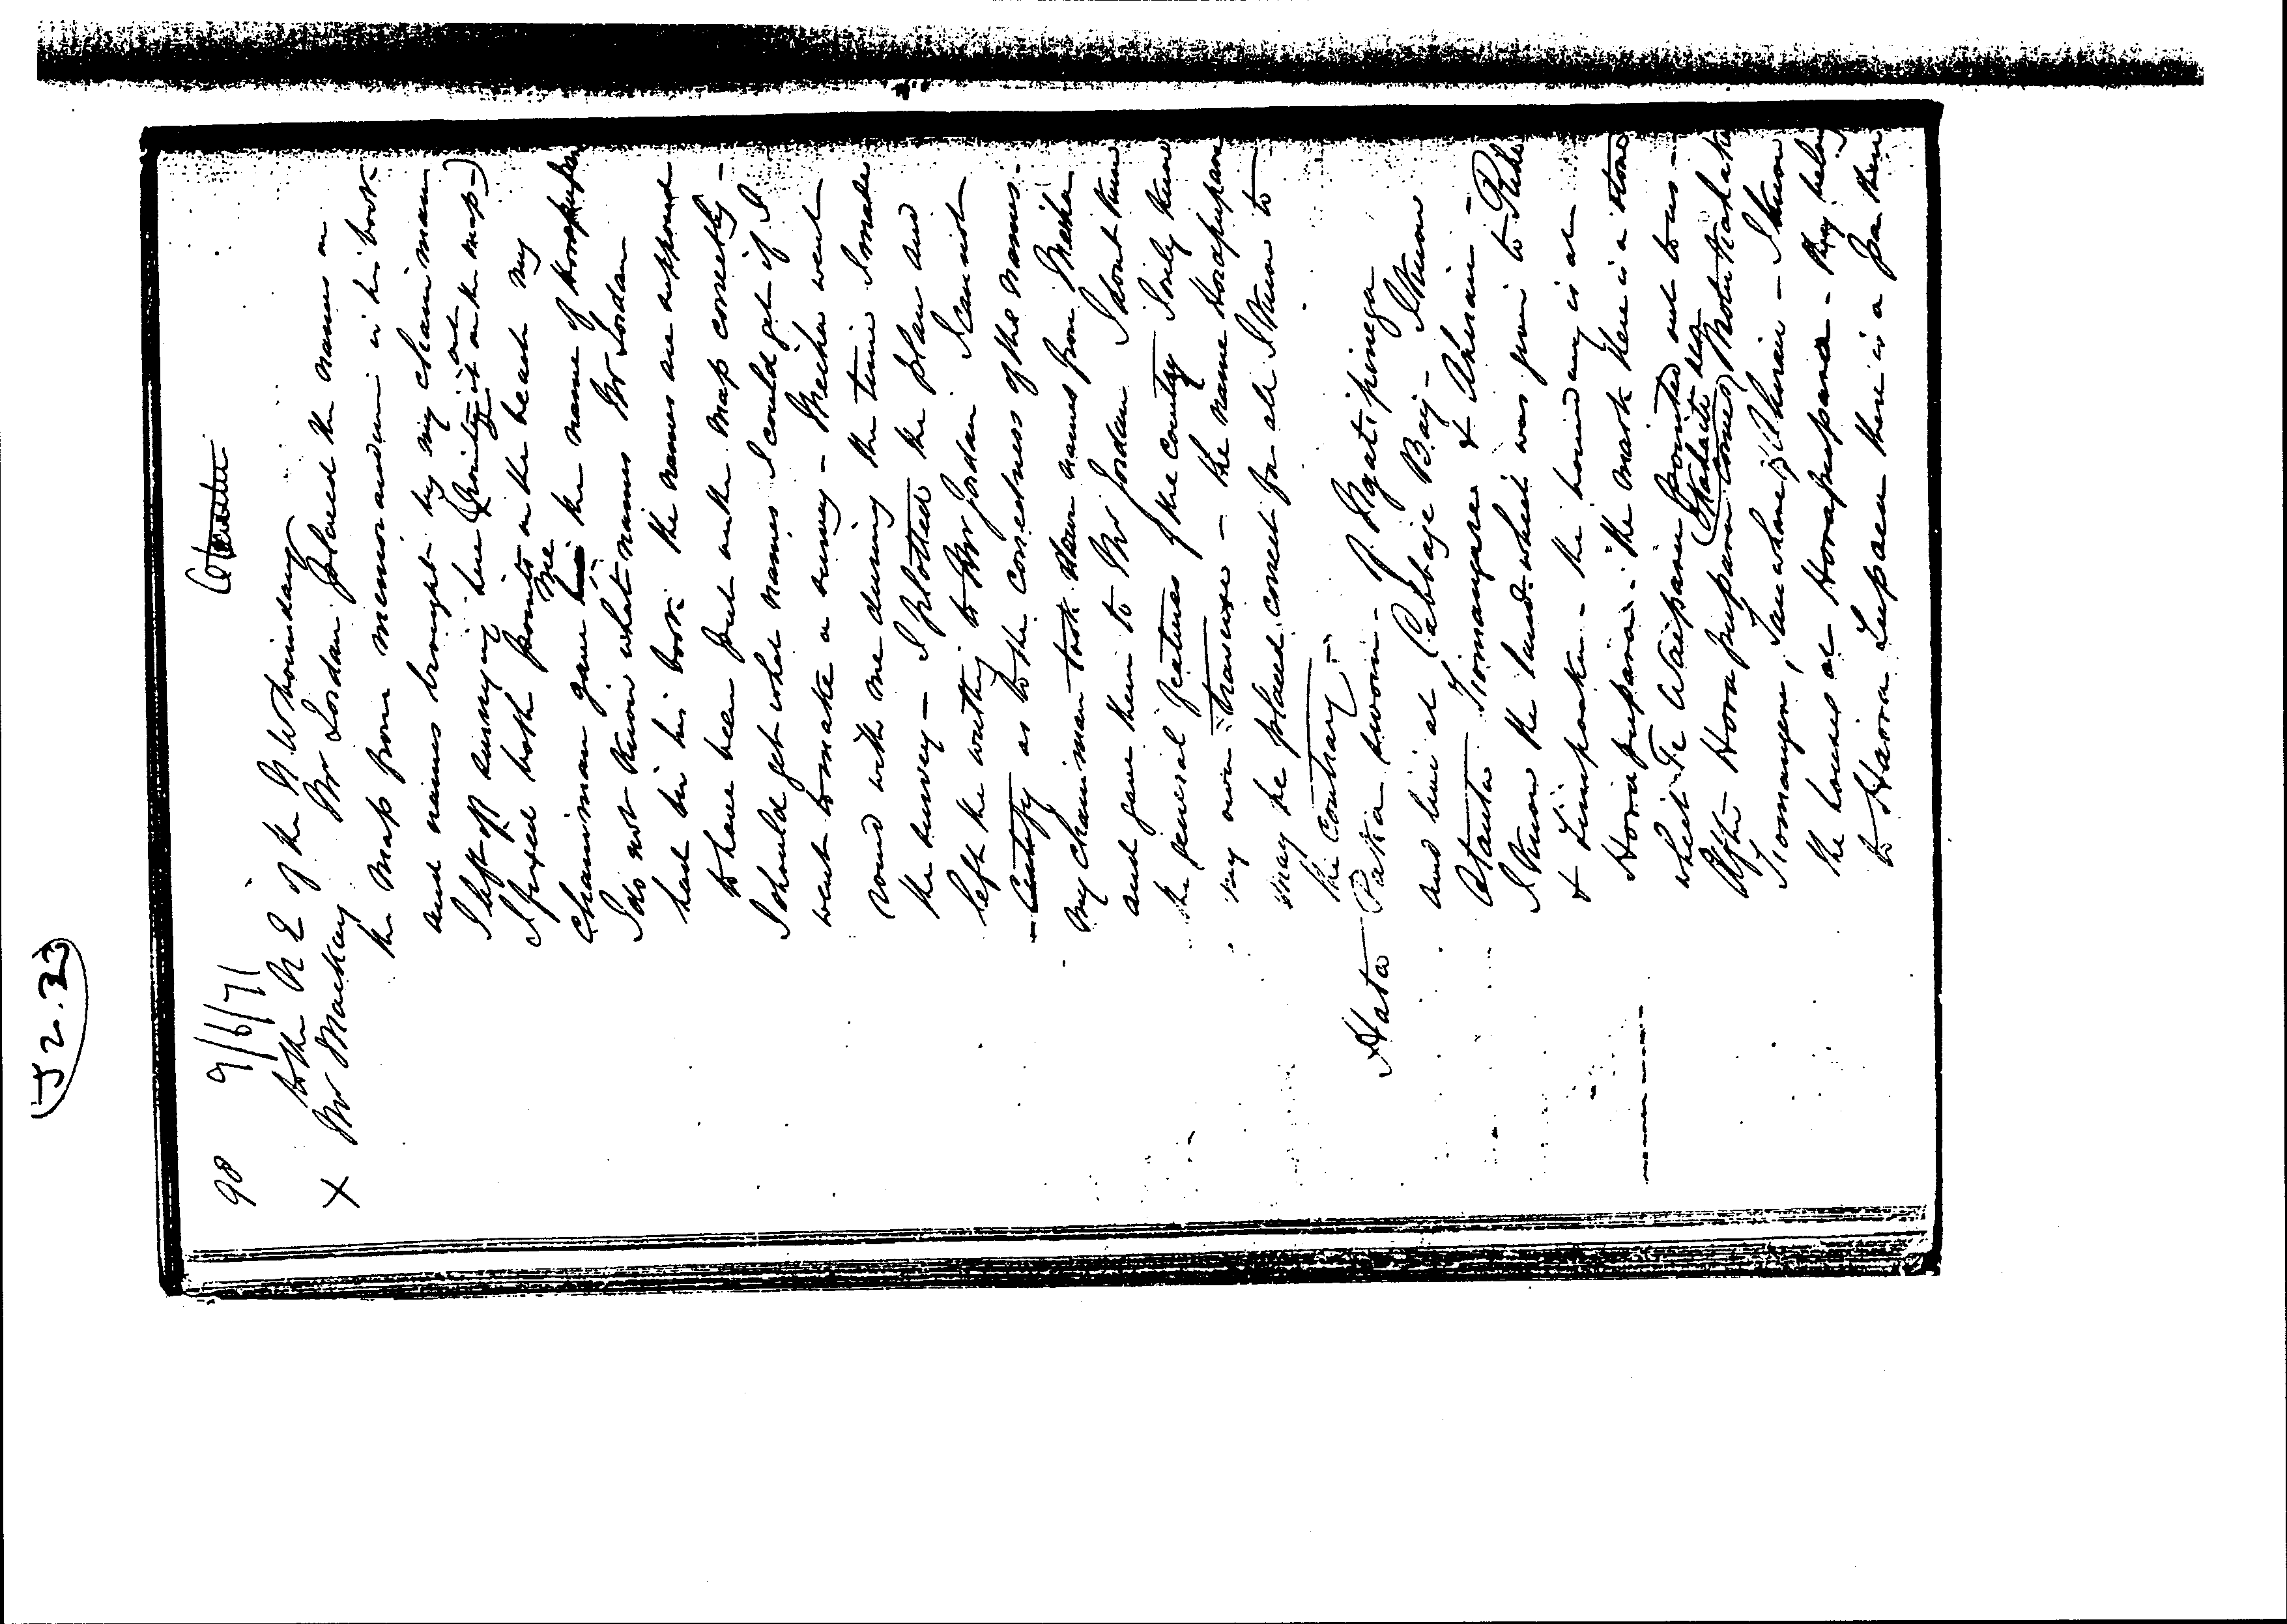 (J2.33)
98 9/6/71
to the N E of the G W boundary
X Mr Mackay Mr Jordan placed the names on
the map from memorandum in his book
and names brought by my chain man
I left off surveying here (pointing it out on the map -)
I fixed both points on the beach my
chainman gave me the name of Horopupara
I do not know what names Mr Jordan
had in his book the names are supposed
to have been put on the map correctly -
I should get what names I could get if I
went to make a survey - Meiha went
round with me during the time I made
the survey - I plotted the plan and
left the writing to Mr Jordan I cannot
- Certify as to the correctness of the names -
My chainman took down names from Meiha
and gave them to Mr Jordan I dont know
the general features of the country I only know
my own traverse - the name Horopupara
may be placed correct for all I know to
the Contrary -
Hata Patia sworn - I Ngatipinega
and live at Cabbage Bay - I know
Otautu Tiomangere & Ahirau -
I know the land which was given to Peke
& - the boundary is at
Horopupara - the mark there is a stone
which Te Waipara pointed out to us -
After Horopupara comes
Tiomangere, Ahirau - I know
the houses at Horopupara - they belong
to Haora there is a pa there